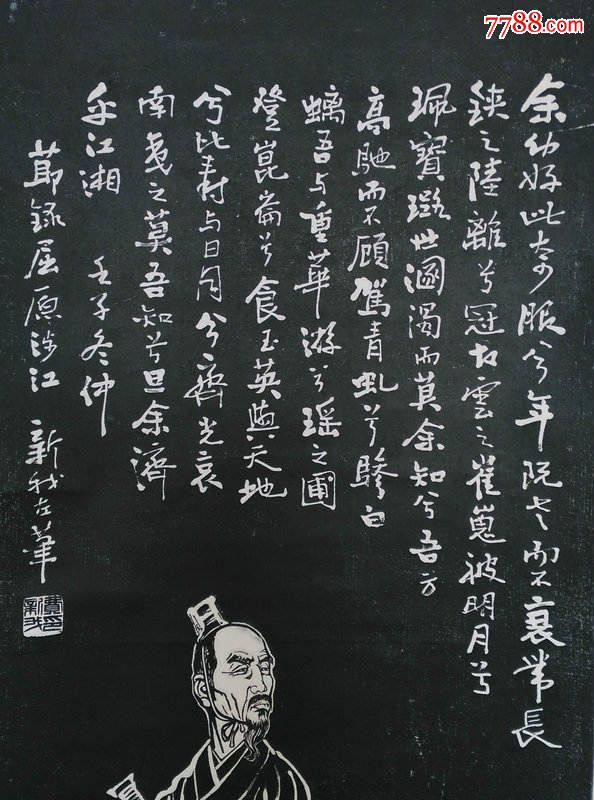 7788.com
余幼好此奇服兮年既老而不衰带長
鋏之陸離兮冠切雲之崔嵬被明月兮
珮寶璐世溷濁而莫余知兮吾方
高馳而不顧駕青虬兮驂白
螭吾与重華游兮瑶之圃
登崑崙兮食玉英與天地
兮比寿与日月兮齊光哀
南夷之莫吾知兮旦余濟
乎江湘 壬子冬仲
節録屈原涉江 新我左筆
費新我印